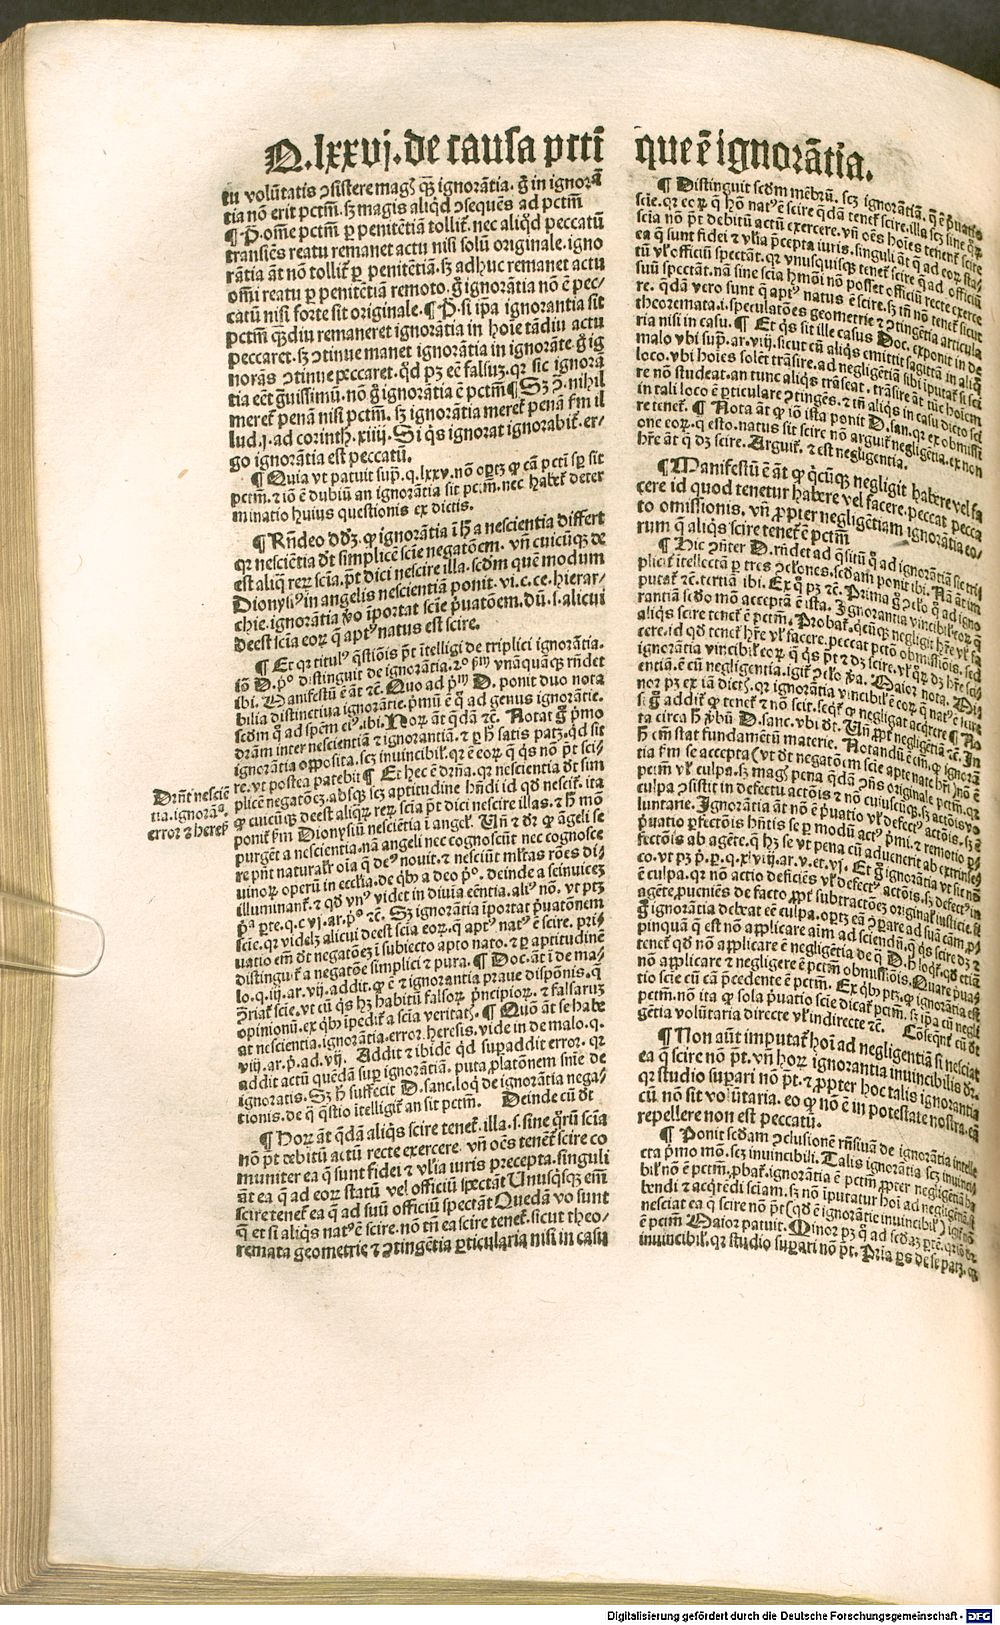 Q.lxxvj.de causa pcti que ē ignorātia.
tu volūtatis ↄsistere magꝭ qȝ ignorātia. g̊ in ignorā
tia nō erit pctm̄. sꝫ magis aliqd̄ ↄsequēs ad pctm̄
¶ P. om̄e pctm̄ ꝑ penitētiā tollit᷑. nec aliqd̄ peccatū
transiēs reatu remanet actu nisi solū originale. igno
rātia āt nō tollit᷑ ꝑ penitētiā. sꝫ adhuc remanet actu
om̄i reatu ꝑ penitētiā remoto. g̊ ignorātia nō ē pec-
catū nisi forte sit originale. ¶ P. si ip̄a ignorantia sit
pctm̄ qȝdiu remaneret ignorātia in hoīe tādiu actu
peccaret. sꝫ ↄtinue manet ignorātia in ignorāte. g̊ ig
norās ↄtinue peccaret. qd̄ pꝫ eē falsuꝫ. qꝛ sic ignorā
tia eēt g̊uissimū. nō g̊ ignorātia ē pctm̄ ¶ Sꝫ ↄ. nihil
meret᷑ penā nisi pctm̄. sꝫ ignorātia meret᷑ penā fm̄ il
lud. j. ad corinth. xiiij. Si q̄s ignorat ignorabit᷑. er-
go ignorātia est peccatū.
¶ Quia vt patuit sup̄. q. lxxv. nō oꝑtꝫ ꝙ cā pcti sp̄ sit
pctm̄. ⁊ iō ē dubiū an ignorātia sit pctm̄. nec habet᷑ deter
minatio huius questionis ex dictis.
¶ Rn̄deo dd̄ꝫ. ꝙ ignorātia ī h̄ a nescientia differt
qꝛ nesciētia dr̄t simplicē sciē negatōem. vn̄ cuicūqꝫ de
est aliqꝫ reꝝ sciā. p̄t dici nescire illa. scdm quē modum
Dionysiꝰ in angelis nescientiā ponit. vi. c. ce. hierar-
chie. ignorātia v̊o īportat sciē p̄uatōem. dū. s. alicui
deest scia eoꝝ q̄ aptꝰ natus est scire.
¶ Et qꝛ titulꝰ q̄stiōis p̄t ītelligi de triplici ignorātia.
iō D. p̊ distinguit de ignorātia. 2º fm̄ vnāquāqꝫ rn̄det
ibi. Manifestū ē āt ⁊c̄. Quo ad p̄m̄ D. ponit duo nota
bilia distinctiua ignorātie. p̄mū ē q̊ ad genus ignorātie.
scdm q̊ ad spēm eiꝰ. ibi. Hoꝝ āt q̄dā ⁊c̄. Notat g̊ p̄mo
dr̄am inter nescientiā ⁊ ignorantiā. ⁊ ꝑ h̄ satis patꝫ. qd̄ sit
ignorātia opposita. scꝫ inuincibil᷑. qꝛ ē eoꝝ q̄ q̄s nō p̄t sci
re. vt postea patebit ¶ Et hec ē dr̄na. qꝛ nescientia dr̄t sim
plicē negatōeꝫ. absqꝫ scꝫ aptitudine hn̄di id qd̄ nescit᷑. ita
ꝙ cuicūqꝫ deest aliqꝝ reꝝ scia p̄t dici nescire illas. ⁊ h̄ mō
ponit᷑ fm̄ Dionysiū nesciētia ī angel᷑. Vn̄ ⁊ dr̄ ꝙ āgeli se
purgēt a nescientia. nā angeli nec cognoscūt nec cognosce
re pn̄t naturalr̄ oīa q̄ deꝰ nouit. ⁊ nesciūt ml̄tas rōes di-
uinoꝝ operū in ecclīa. de qb̄ꝰ a deo p̊. deinde a seinuiceꝫ
illuminant᷑. ⁊ qd̄ vnꝰ videt in diuīa eēntia. aliꝰ nō. vt ptꝫ
p̄ª ꝑte. q. c vj. ar. p̊ ⁊c̄. Sꝫ ignorātia īportat p̄uatōnem
scie. qꝛ videlꝫ alicui deest scia eoꝝ. q̄ aptꝰ natꝰ ē scire. pri
uatio em̄ dr̄t negatōeꝫ ī subiecto apto nato. ⁊ ꝑ aptitudinē
distinguit᷑ a negatōe simplici ⁊ pura. ¶ Doc. āt ī de ma-
lo. q. iij. ar. vij. addit. ꝙ ē ⁊ ignorantia praue dispōnis. q̄
ↄriat᷑ scie. vt cū q̄s hꝫ habitū falsoꝝ p̄ncipioꝝ. ⁊ falsaruꝫ
opinionū. ex qb̄ꝰ īpedit᷑ a scia veritatꝭ. ¶ Quo āt se habe
at nescientia. ignorātia. error. heresis. vide in de malo. q.
viij. ar. p̊. ad. vij. Addit ⁊ ibidē qd̄ suꝑaddit error. qꝛ
addit actū quēdā suꝑ ignorātiā. puta platōnem sn̄ie de
ignoratis. Sꝫ h̄ suffecit D. sanc. loqd̄ de ignorātia nega-
tionis. de q̄ q̄stio ītelligit᷑ an sit pctm̄. Deinde cū dr̄t
¶ Hoꝝ āt q̄dā aliqs scire tenet᷑. illa. s. sine q̊rū scia
nō p̄t debitū actū recte exercere. vn̄ oēs tenēt᷑ scire co
muniter ea q̄ sunt fidei ⁊ vl̄ia iuris precepta. singuli
āt ea q̄ ad eoꝝ statū vel officiū spectāt Unusqsqꝫ em̄
scire tenet᷑ ea q̄ ad suū officiū spectāt Quedā vo sunt
q̄ et si aliqs natꝰ ē scire. nō tn̄ ea scire tenet᷑. sicut theo-
remata geometrie ⁊ ↄtingētia ꝑticularia nisi in casu
Drn̄t nesciē
tia. ignorāª.
error ⁊ heres᷑
¶ Distinguit scdm mēbrū. scꝫ ignorātiā. q̄ ē p̄uatio
scie. qꝛ eoꝝ q̄ hō natꝰ ē scire q̄dā tenet᷑ scire. illa scꝫ sine q̊rū
scia nō p̄t debitū actū exercere. vn̄ oēs hoīes tenent᷑ scire
ea q̄ sunt fidei ⁊ vl̄ia p̄cepta iuris. singuli āt q̄ ad eoꝝ sta-
tū vl᷑ officiū spectāt. qꝛ vnusquisqꝫ tenet᷑ scire q̄ ad officiū
suū spectāt. nā sine scia hm̄oi nō posset officiū recte exerce
re. q̄dā vero sunt q̄ aptꝰ natus ē scire. sꝫ tn̄ nō tenet᷑ sicut
theoremata. i. speculatōes geometrie ⁊ ↄtingētia articula
ria nisi in casu. ¶ Et q̄s sit ille casus Doc. exponit in de
malo vbi sup̄. ar. viij. sicut cū aliqs emittit sagittā in aliq̊
loco. vbi hoīes solēt trāsire. ad negligētiā sibi īputat᷑ si sci
re nō studeat. an tunc aliqs trāseat. trāsire āt tūc hoīem
in tali loco ē ꝑticulare ↄtingēs. ⁊ tn̄ aliqs in casu dicto sci
re tenet᷑. ¶ Nota āt ꝙ iō ista ponit D. san. qꝛ ex obmissi
one eoꝝ. q̄ esto. natus sit scire nō arguit᷑ negligētia. ex non
hr̄e āt q̄ dꝫ scire. Arguit᷑. ⁊ est negligentia.
¶ Manifestū ē āt ꝙ q̊cūqꝫ negligit habere vel fa
cere id quod tenetur habere vel facere. peccat pecca
to omissionis. vn̄ ꝓpter negligētiam ignorātia eo-
rum q̄ aliqs scire tenet᷑ ē pctm̄
¶ Hic ↄn̄ter D. rn̄det ad q̄sitū q̊ ad ignorātiā sic tri
plicit᷑ itellectā ꝑ tres ↄclōnes. scdam ponit ibi. Nā āt im
putat᷑ ⁊c̄. tertiā ibi. Ex q̊ pꝫ ⁊c̄. Prima g̊ ↄclo q̊ ad igno
rantiā scdo mō acceptā ē ista. Ignorantia vincibil᷑ eoꝝ q̄
aliqs scire tenet᷑ ē pctm̄. Probat᷑. qcūqꝫ negligit hr̄e vl᷑ fa
cere. id qd̄ tenet᷑ hr̄e vl᷑ facere. peccat pctō obmissiōis. sed
ignorātia vincibil᷑ eoꝝ q̄ q̄s p̄t ⁊ dꝫ scire. vl᷑ qꝝ dꝫ hr̄e sci
entiā. ē cū negligentia. igit᷑ ↄclo p̄a. Maior nota. Mi
nor pꝫ ex iā dictꝭ. qꝛ ignorātia vincibil᷑ ē eoꝝ q̄ natꝰ ē scire
si g̊ addit᷑ ꝙ tenet᷑ ⁊ nō scit. seq̄t᷑ ꝙ negligat acq̄rere ¶ No
ta circa h̄ v̊bū D. sanc. vbi dr̄t. Vn̄ ꝓpt᷑ negligētiā ⁊c̄. In
h̄ em̄ stat fundamētū materie. Notandū ē em̄. ꝙ ignorā
tia fm̄ se accepta (vt dr̄t negatōem scie apte nate hr̄i) nō ē
pctm̄ vl᷑ culpa. sꝫ magꝭ pena q̄dā ↄn̄s originale pctm̄. qꝛ
culpa ↄsistit in defectu actōis ⁊ nō cuiuscūqꝫ. sꝫ actōis vo
luntarie. Ignorātia āt nō ē p̄uatio vl᷑ defectꝰ actōis. sꝫ ē
p̄uatio ꝑfectōis hn̄tis se ꝑ modū actꝰ p̄mi. ⁊ remotio ꝑ
fectōis ab agēte. q̄ hꝫ se vt pena cū adueniat ab extrinse
co. vt pꝫ p̄. ꝑ. q. xlviij. ar. v. et. vj. Et g̊ ignorātia vt sit nō
ē culpa. qꝛ nō actio deficiēs vl᷑ defectꝰ actōis. sꝫ defectꝰ in
agēte. ꝓueniēs de facto ꝓpt᷑ subtractōeꝫ original᷑ iusticie. si
g̊ ignorātia debeat eē culpa. oꝑtꝫ eā ↄꝑare ad suā cām ꝓ
pinquā q̄ est nō applicare aīm ad sciendū. q̄ q̄s scire dꝫ ⁊
tenet᷑ qd̄ nō applicare ē negligētia de q̄ D. h̄ loq̄t᷑. qd̄ etiā
nō applicare ⁊ negligere ē pctm̄ obmissiōis. Quare p̄ua-
tio scie cū cā p̄cedente ē pctm̄. Ex qb̄ꝰ ptꝫ. ꝙ ignorātia est
pctm̄. nō ita ꝙ sola p̄uatio scie dicat᷑ pctm̄. sꝫ ip̄a cū negli
gētia volūtaria directe vl᷑ indirecte ⁊c̄. Cōseqn̄t᷑ cū dr̄t
¶ Non aūt imputat᷑ hoī ad negligentiā si nesciat
ea q̄ scire nō p̄t. vn̄ hoꝝ ignorantia inuincibilis dr̄.
qꝛ studio suꝑari nō p̄t. ⁊ ꝓpter hoc talis ignorantia
cū nō sit volūtaria. eo ꝙ nō ē in potestate nostra. eā
repellere non est peccatū.
¶ Ponit scdam ↄclusionē rn̄siuā de ignorātia intelle
cta p̄mo mō. scꝫ inuincibili. Talis ignorātia scꝫ inuinci
bil᷑ nō ē pctm̄. ꝓbat᷑. ignorātia ē pctm̄. ꝓpter negligētiā ha
bendi ⁊ acq̄rēdi sciam. sꝫ nō īputatur hoī ad negligētiā. si
nesciat ea q̄ scire nō p̄t (qd̄ ē ignorātie inuincibil᷑) igit᷑ nō
ē pctm̄. Maior patuit. Minor pꝫ q̊ ad scdaꝫ ꝑtē. qꝛ iō dr̄
inuincibil᷑. qꝛ studio suꝑari nō p̄t. Pria ꝑs de se patꝫ. qꝛ
Digitalisierung gefördert durch die Deutsche Forschungsgemeinschaft - DFG